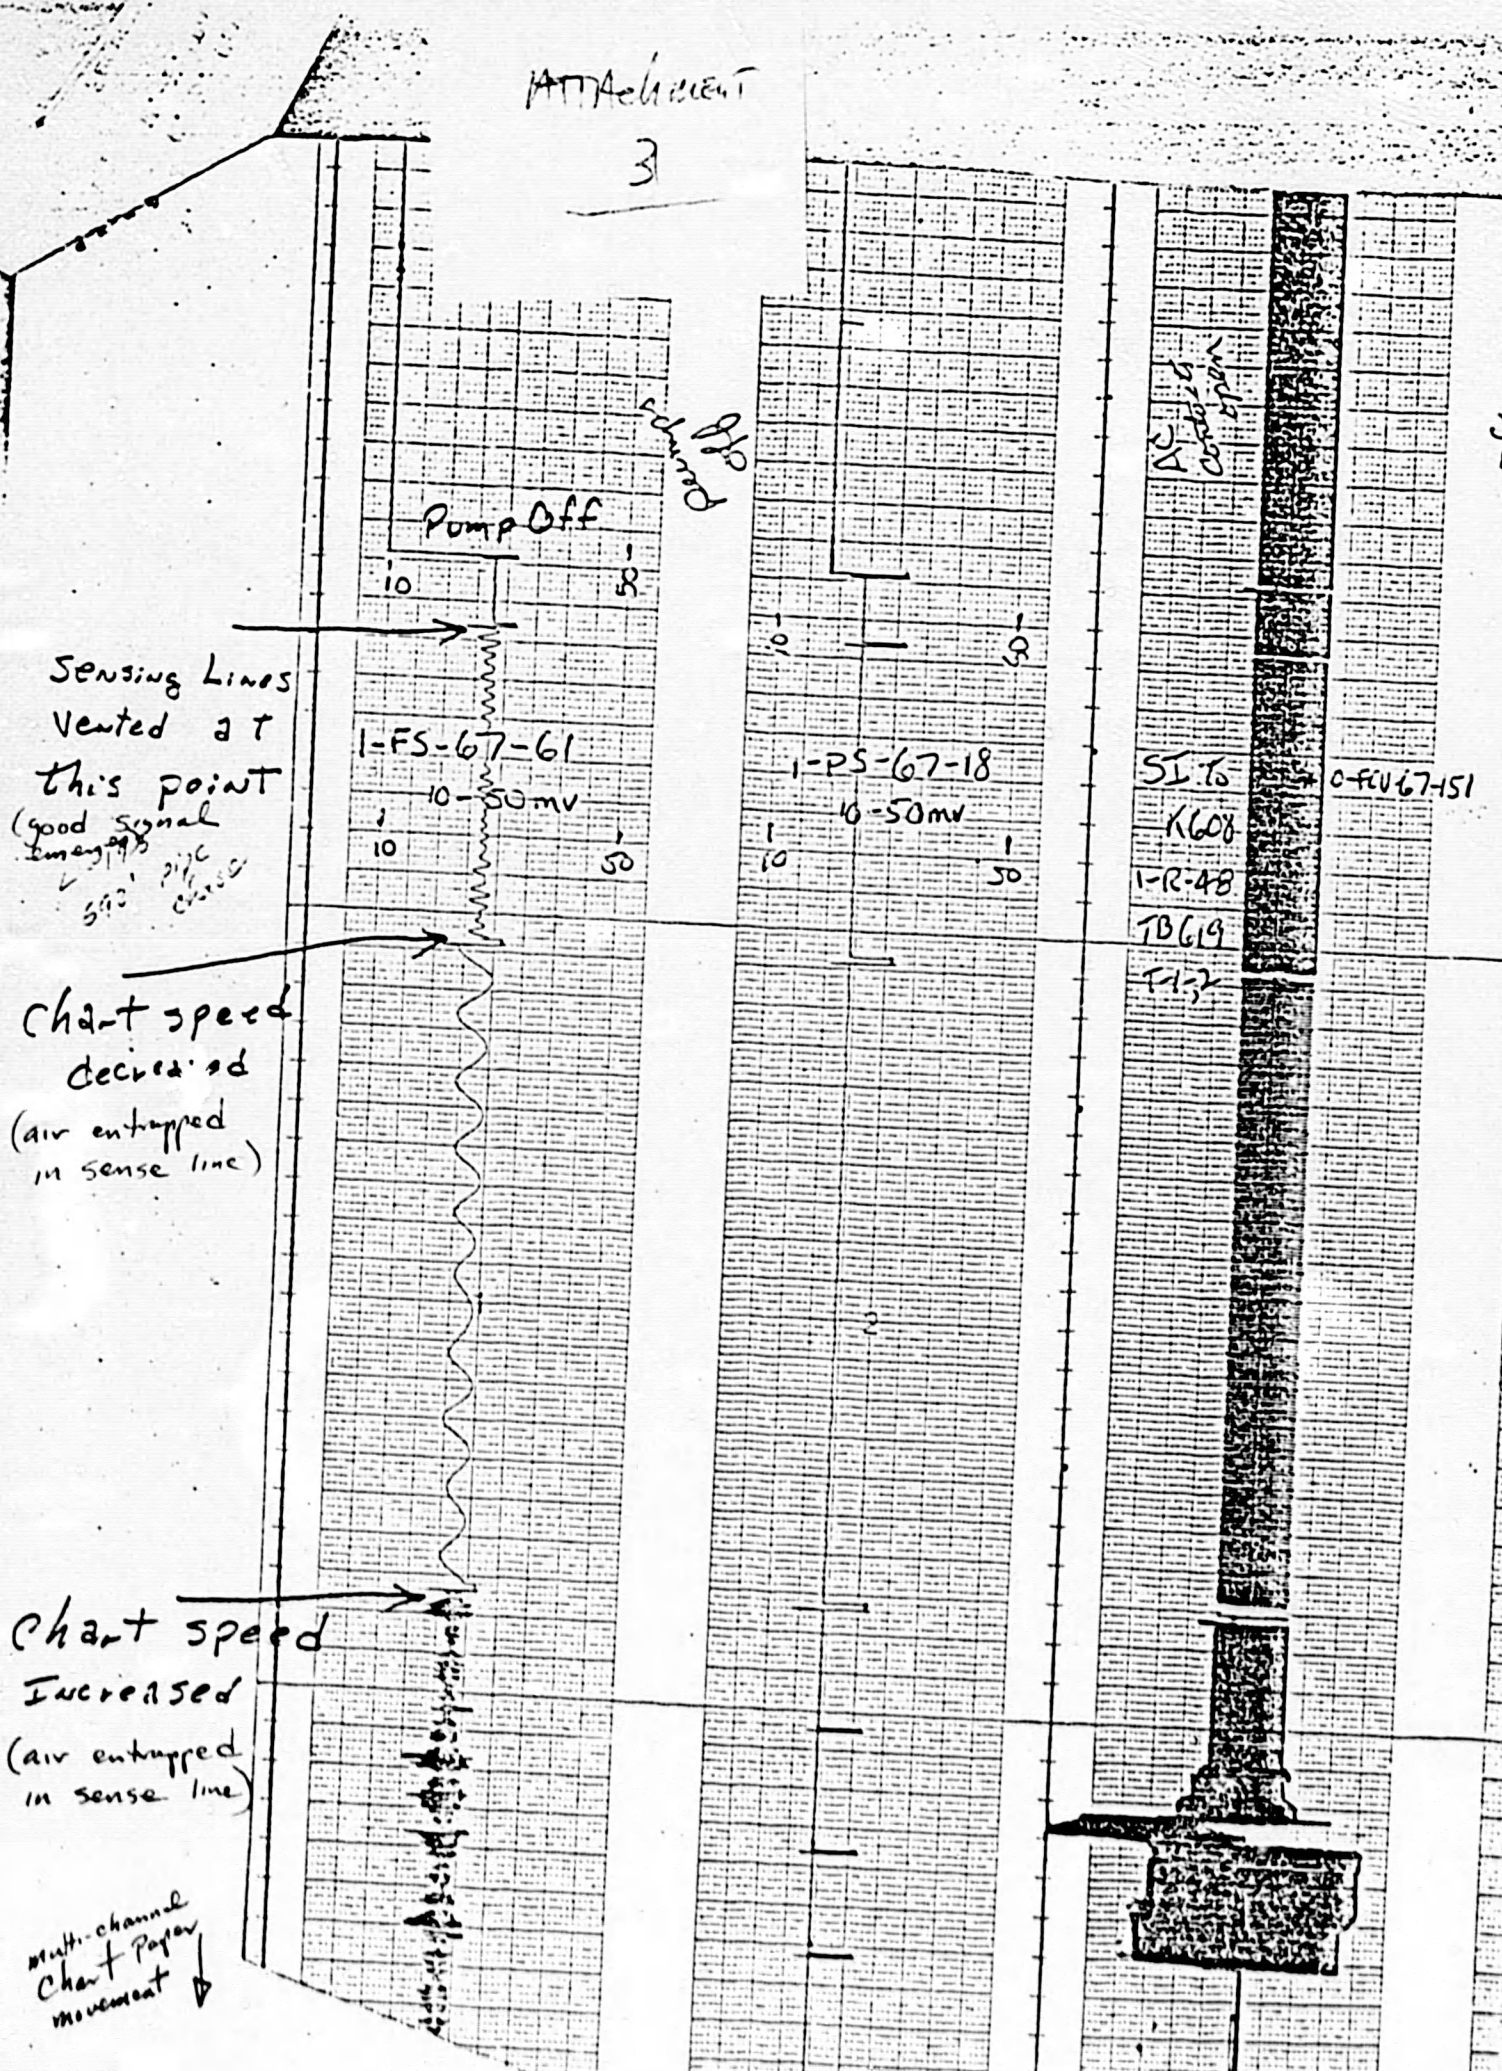 Attachment
3
Pumps
off
AC
contacts
open
Pump Off
10
50
10
50
Sensing Lines
vented at
this point
(good signal
1-FS-67-61
10-50mv
10
50
1-PS-67-18
10-50mv
10
50
SI To
K608
1-R-48
TB619
T-1-2
0-FCV-67-151
Chart speed
decreased
(air entrapped
in sense line)
2
Chart speed
Increased
(air entrapped
in sense line)
multi-channel
Chart Paper
movement